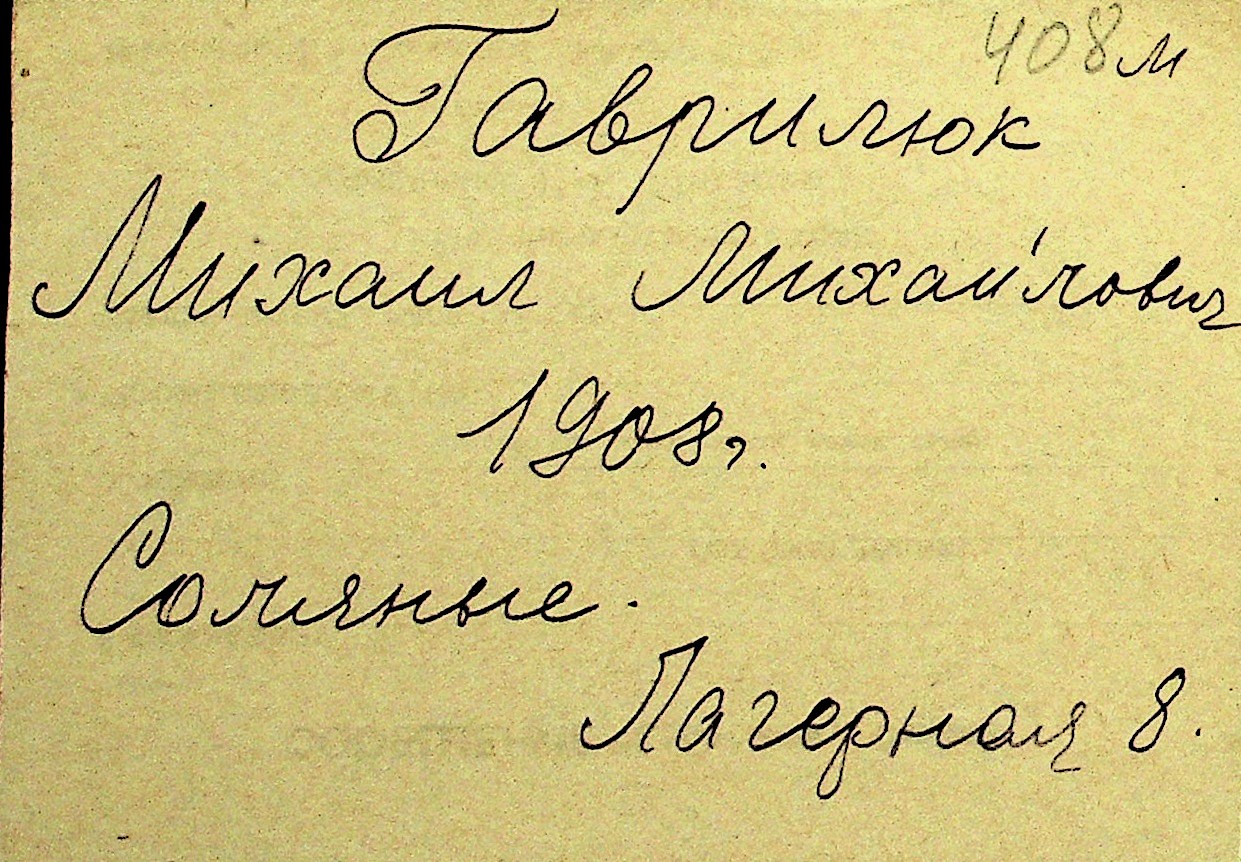 408 м
Гаврилюк
Михаил Михайлович
1908г.
Соляные.
Лагерная 8.